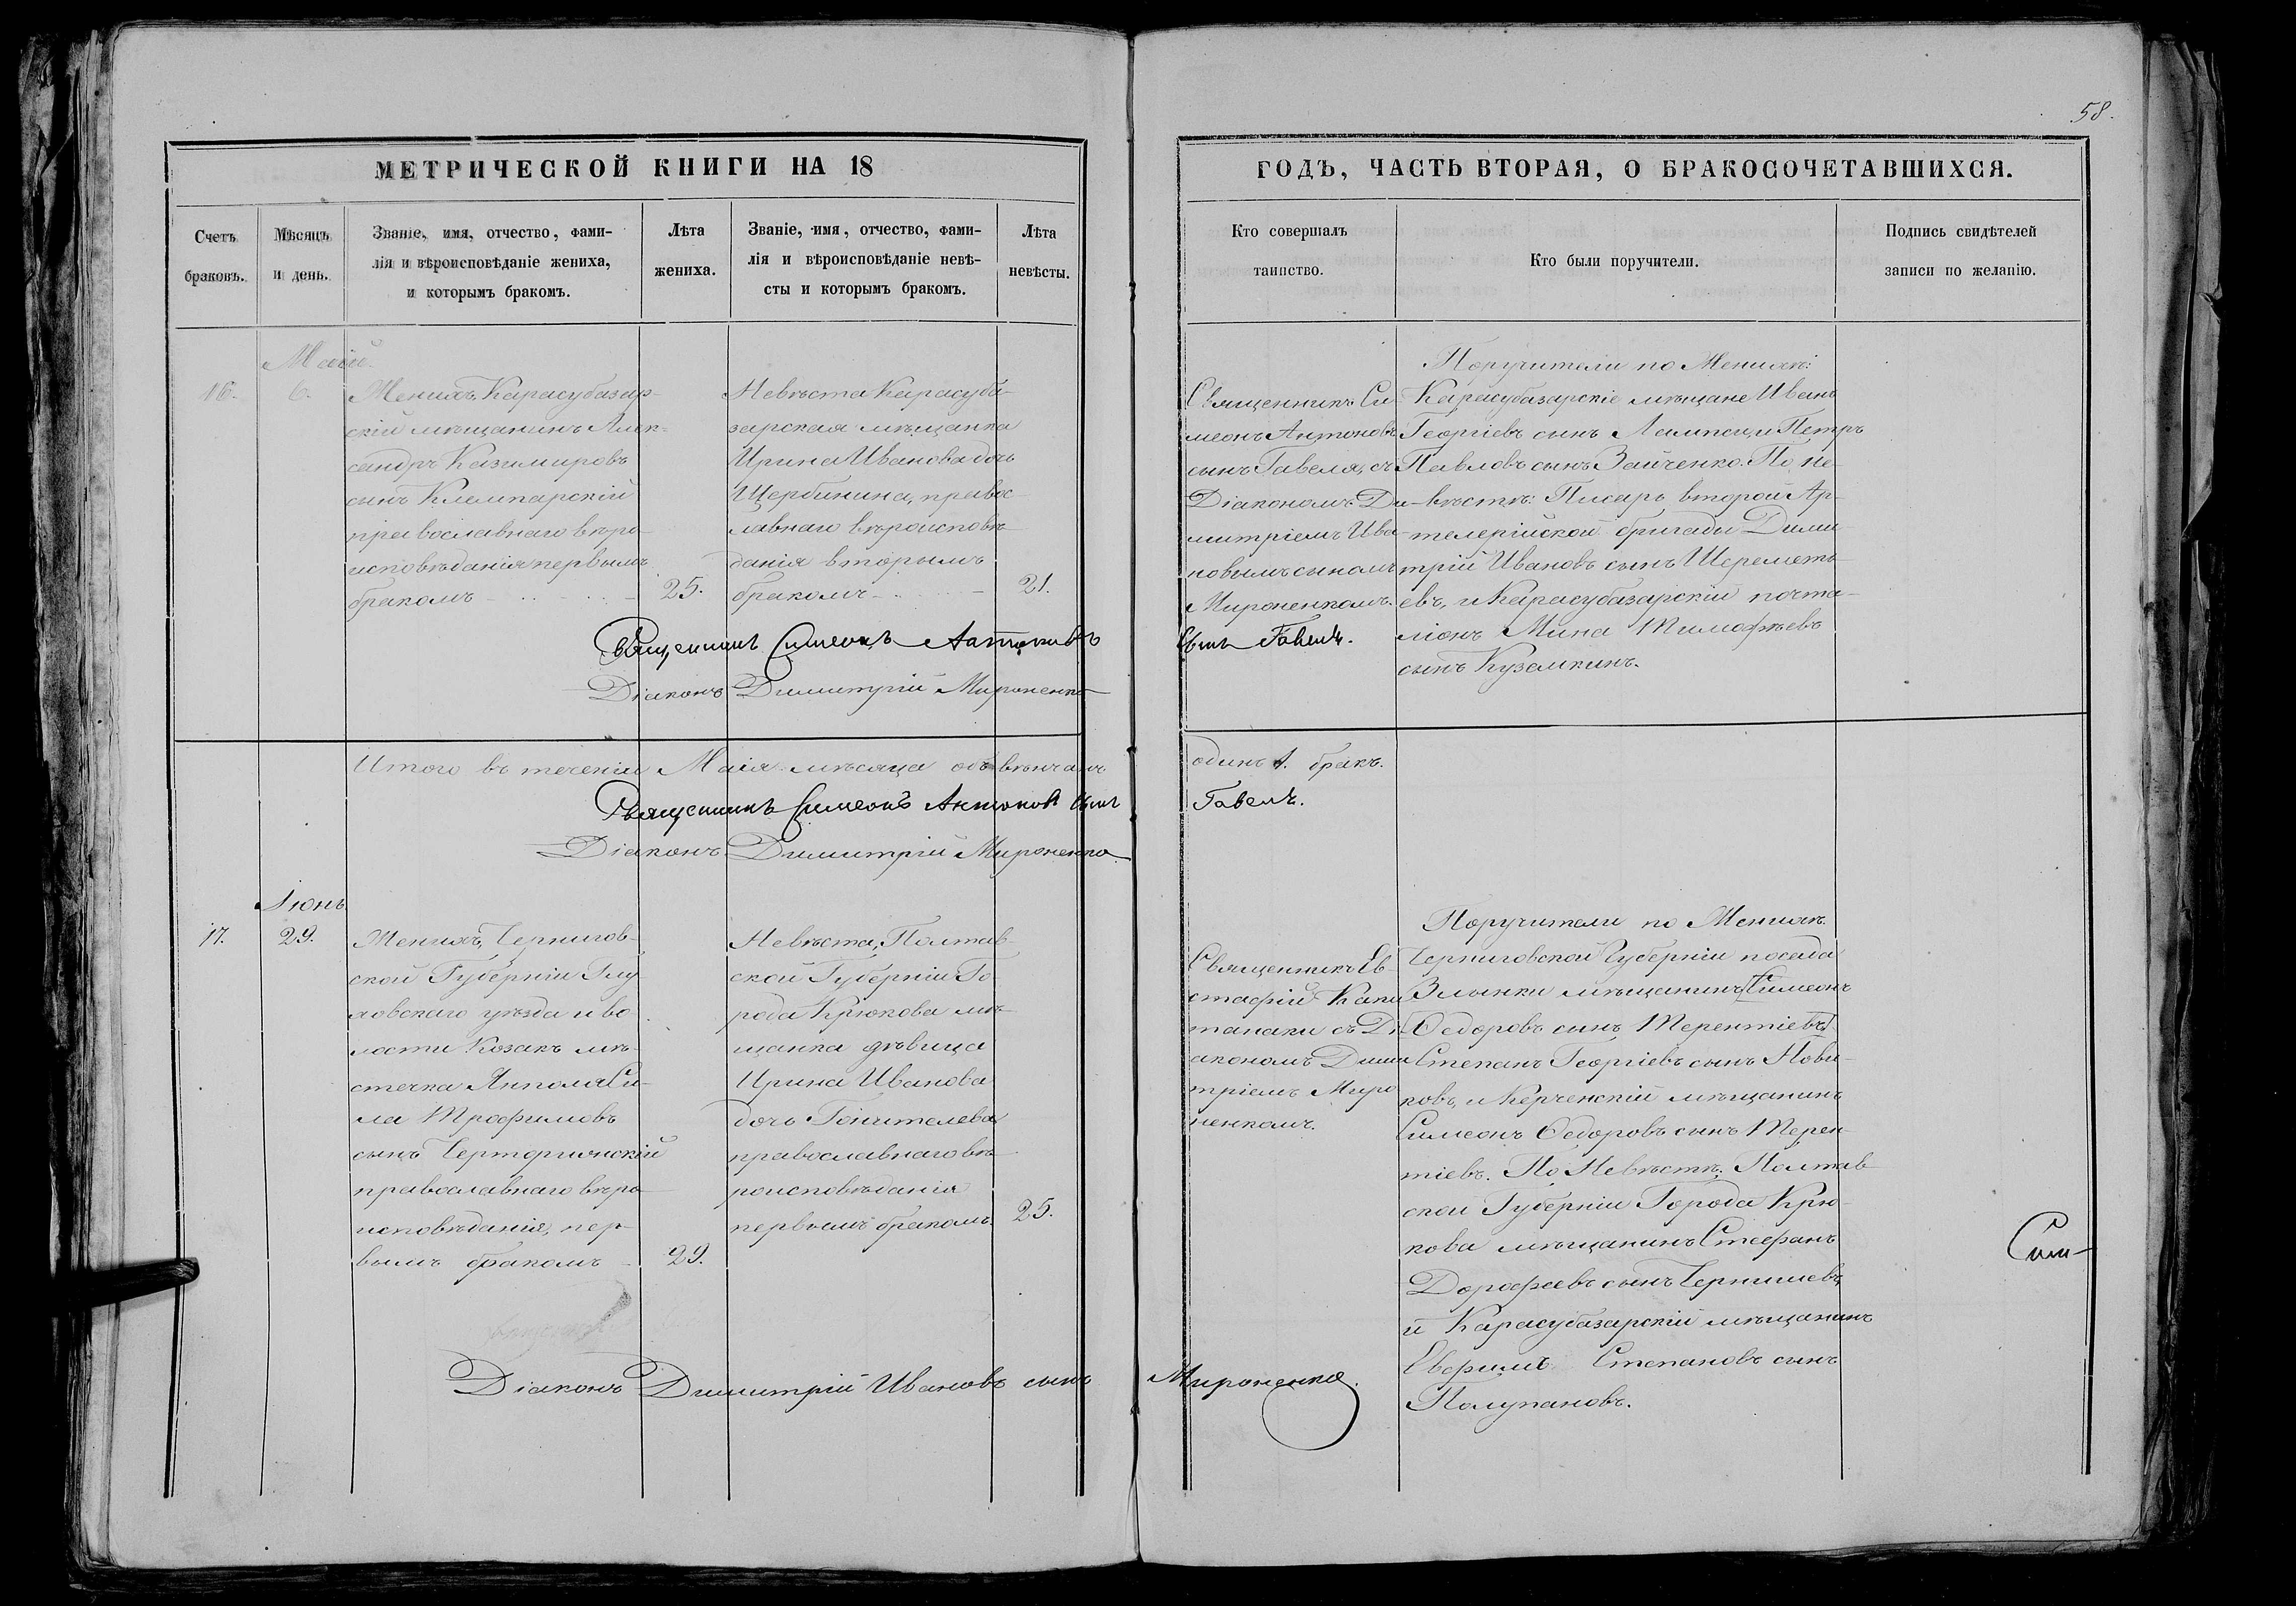 58.
МЕТРИЧЕСКОЙ КНИГИ НА 18
Счетъ
браковъ.
Мѣсяцъ
и день.
Званіе, имя, отчество, фами-
лія и вѣроисповѣданіе жениха,
и которымъ бракомъ.
Лѣта
жениха.
Званіе, имя, отчество, фами-
лія и вѣроисповѣданіе невѣ-
сты и которымъ бракомъ.
Лѣта
невѣсты.
ГОДЪ, ЧАСТЬ ВТОРАЯ, О БРАКОСОЧЕТАВШИХСЯ.
Кто совершалъ
таинство.
Кто были поручители.
Подпись свидѣтелей
записи по желанію.
Маій.
16.
6.
Женихъ, Карасубазар-
скій мѣщанинъ Алек-
сандръ Казимировъ
сынъ Клемпарскій
православнаго вѣро-
исповѣданія первымъ
бракомъ
25.
Невѣста Карасуба-
зарская мѣщанка
Ирина Иванова дочь
Щербинина, правос-
лавнаго вѣроисповѣ-
данія вторымъ
бракомъ
21.
Священникъ Си-
меонъ Антоновъ
сынъ Гавеля, съ
Діакономъ Ди-
митріемъ Ива-
новымъ сыномъ
Мироненкомъ.
Поручители по Женихѣ:
Карасубазарскіе мѣщане Иванъ
Георгіевъ сынъ и Петръ
Павловъ сынъ Зайченко. По не-
вѣстѣ: Писарь второй Ар-
телерійской бригады Дими-
трій Ивановъ сынъ Шереметь-
евъ, и Карасубазарскій почта-
ліонъ Мина Тимофѣевъ
сынъ Куземкинъ.
Священникъ Симеонъ Антоновъ
сынъ Гавель.
Діаконъ Димитрій Мироненко
Итого въ теченіи Маія мѣсяца обвѣнчанъ
одинъ 1. бракъ.
Священникъ Симеонъ Антоновъ сынъ
Гавель.
Діаконъ Димитрій Мироненко
Іюнь
17.
29.
Женихъ, Чернигов-
ской Губерніи Глу-
ховскаго уѣзда и во-
лости Козакъ мѣ-
стечка Янполя Си-
ла Трофимовъ
сынъ
православнаго вѣро-
исповѣданія, пер-
вымъ бракомъ
29.
Невѣста, Полтав-
ской Губерніи Го-
рода Крюкова мѣ-
щанка дѣвица
Ирина Иванова
дочь
православнаго вѣ-
роисповѣданія
первымъ бракомъ.
25.
Священникъ Ев-
стафій Капи
танаки съ Ді-
акономъ Дими
тріемъ Миро
ненкомъ.
Поручители по Женихѣ.
Черниговской Губерніи посада
Злынки мѣщанинъ [Симеонъ
Ѳедоровъ сынъ Терентіевъ]
Степанъ Георгіевъ сынъ Нови-
ковъ, и Керченскій мѣщанинъ
Симеонъ Ѳедоровъ сынъ Терен-
тіевъ. По Невѣстѣ: Полтав-
ской Губерніи Города Крю-
кова мѣщанинъ Стефанъ
Дорофеевъ сынъ Чернишевъ,
и Карасубазарскій мѣщанинъ
Евфимъ Степановъ сынъ
Полупановъ.
Сим-
Діаконъ Димитрій Ивановъ сынъ
Мироненко.